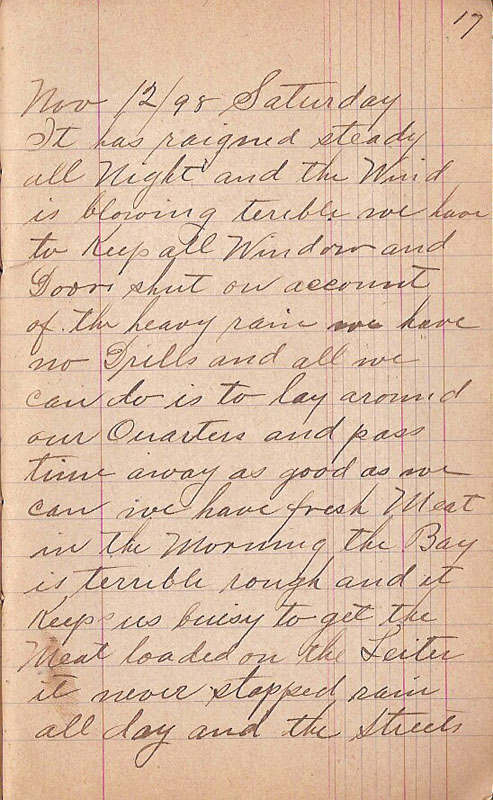 17
Nov 12/98 Saturday
It has raigned steady
all Night and the Wind
is blowing terible we have
to Keep all Window and
Doors shut on account
of the heavy rain we have
no Drills and all we
can do is to lay around
our Quarters and pass
time away as good as we
can we have fresh Meat
in the Morning the Bay
is terrible rough and it
Keeps us buisy to get the
Meat loaded on the Leiter
it never stopped rain
all day and the Streets